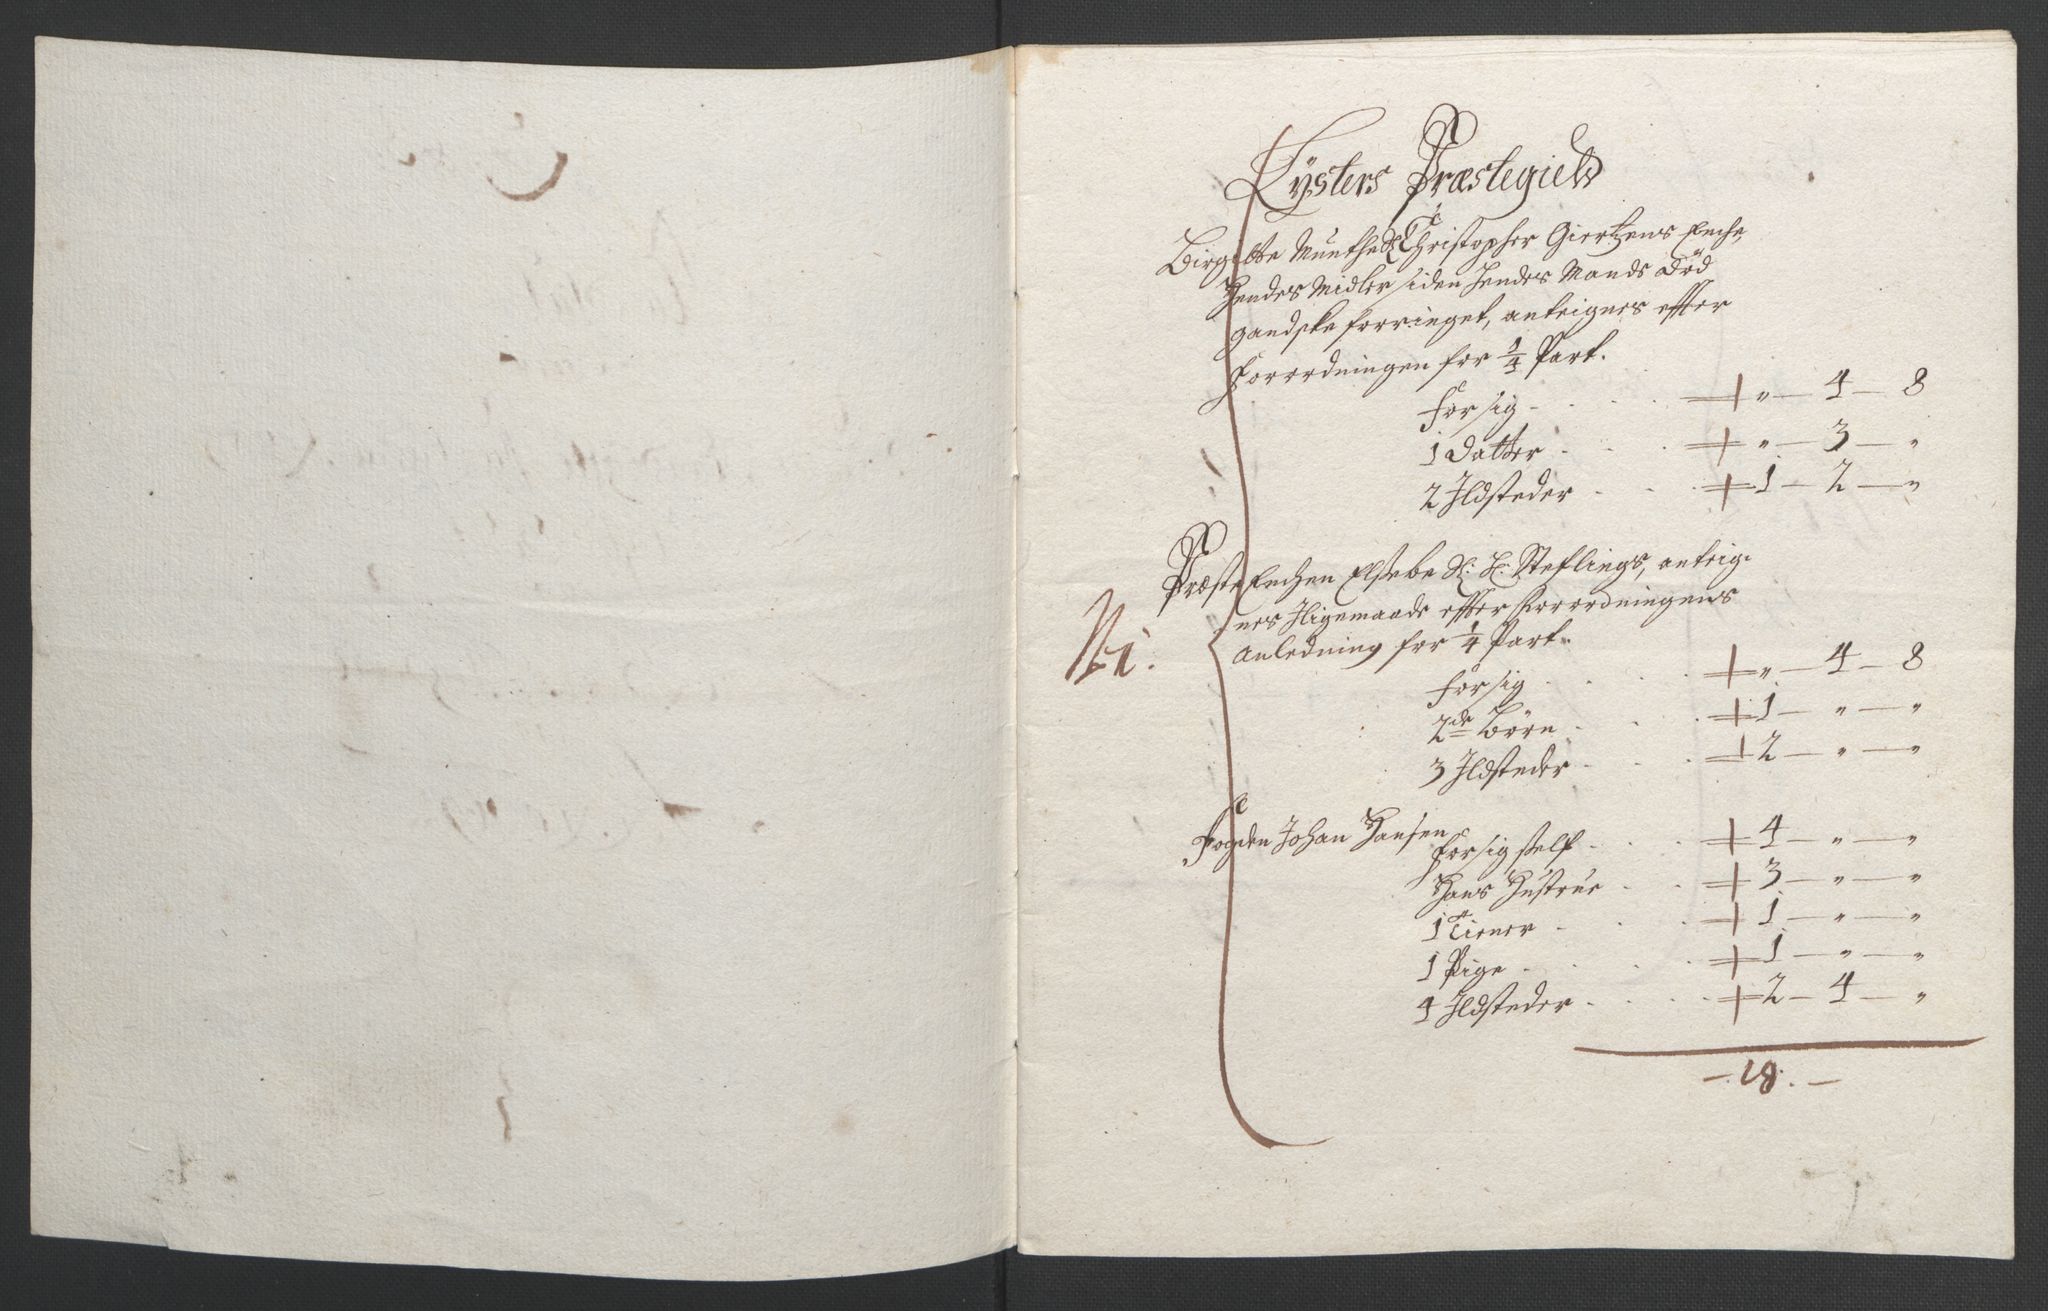 Lysters Præstegield
Birgitte Munthe Sl: Christopher Giertzens Enche,
Hendes Midler siden hendes Mands Död
gandske forringet, anteignes effter
Forordningen for 1/4 Part.
For sig - - - „ — 4 — 8
1 Datter - - - „ — 3 — „
2 Ildsteder - - - 1 — 2 — „
Præste Enchen Elsebe Sl: H: Steflings, anteig-
nes Iligemaade effter Forordningens
Anledning for 1/4 Part.
For sig - - - „ — 4 — 8
2de Börn - - - 1 — „ — „
3 Ildsteder - - - 2 — „ — „
N 1.
Fogden Johan Hansen
For sig self - - - 4 — „ — „
Hans Hustrue - - - 3 — „ — „
1 Tiener - - - 1 — „ — „
1 Pige - - - 1 — „ — „
4 Ildsteder - - - 2 — 4 — „
— 18. —